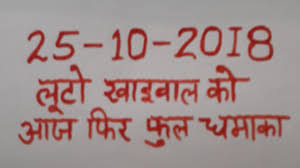 25-10-2018
लूटो खाइवाल को
आज फिर फुल धमाका